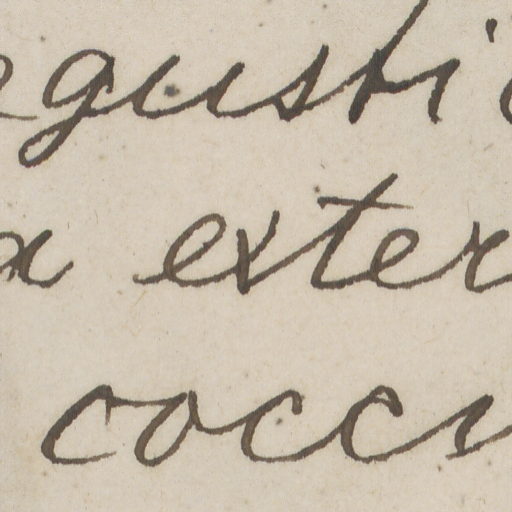 egusti
a exter
cocci